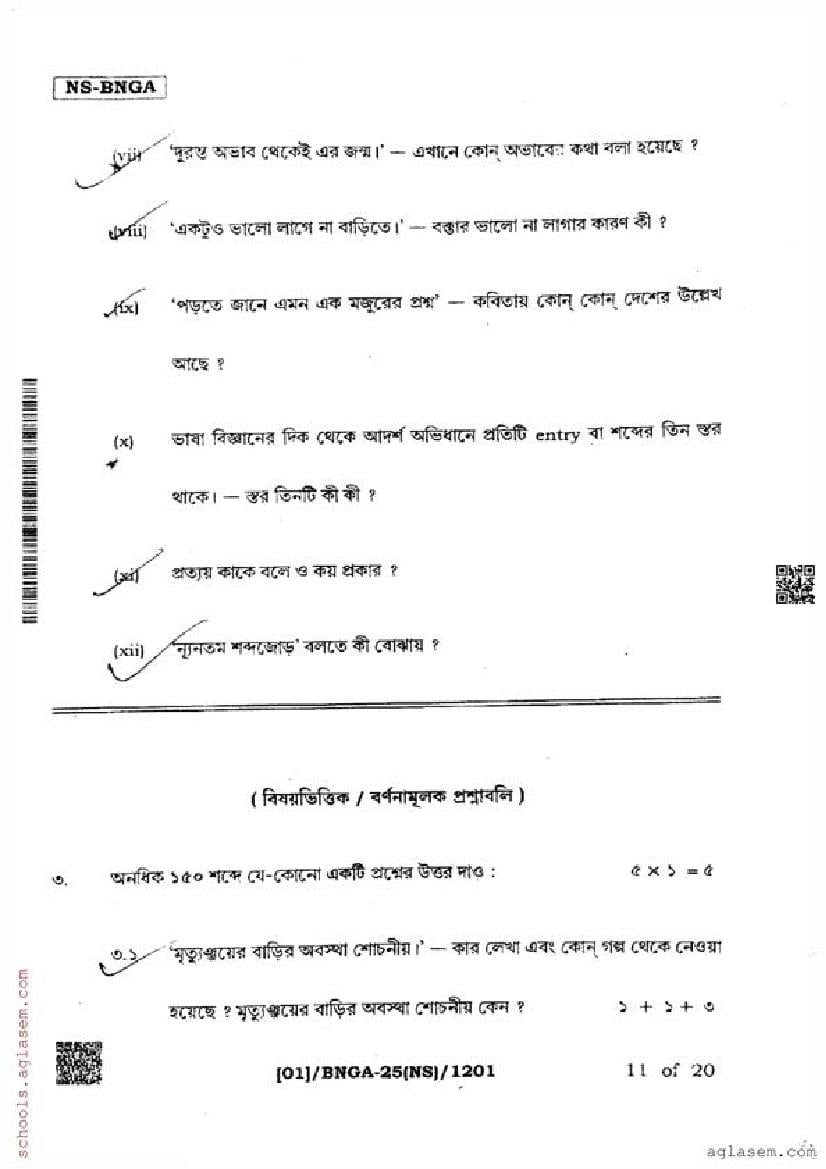 NS-BNGA
(vii) 'দুরন্ত অভাব থেকেই এর জন্ম।' — এখানে কোন্ অভাবের কথা বলা হয়েছে ?
(viii) 'একটুও ভালো লাগে না বাড়িতে।' — বক্তার ভালো না লাগার কারণ কী ?
(ix) 'পড়তে জানে এমন এক মজুরের প্রশ্ন' — কবিতায় কোন্ কোন্ দেশের উল্লেখ
আছে ?
(x) ভাষা বিজ্ঞানের দিক থেকে আদর্শ অভিধানে প্রতিটি entry বা শব্দের তিন স্তর
থাকে। — স্তর তিনটি কী কী ?
(xi) প্রত্যয় কাকে বলে ও কয় প্রকার ?
(xii) 'ন্যূনতম শব্দজোড়' বলতে কী বোঝায় ?
( বিষয়ভিত্তিক / বর্ণনামূলক প্রশ্নাবলি )
৩. অনধিক ১৫০ শব্দে যে-কোনো একটি প্রশ্নের উত্তর দাও : ৫ × ১ = ৫
৩.১ 'মৃত্যুঞ্জয়ের বাড়ির অবস্থা শোচনীয়।' — কার লেখা এবং কোন্ গল্প থেকে নেওয়া
হয়েছে ? মৃত্যুঞ্জয়ের বাড়ির অবস্থা শোচনীয় কেন ? ১ + ১ + ৩
[01]/BNGA-25(NS)/1201 11 of 20
schools.aglasem.com
aglasem.com